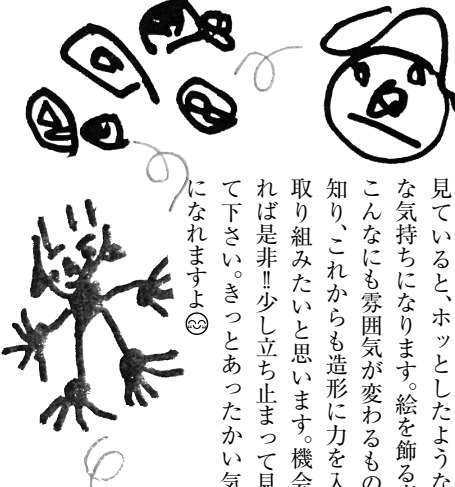 見ていると、ホッとしたような
な気持ちになります。絵を飾る
こんなにも雰囲気が変わるもの
知り、これからも造形に力を入
取り組みたいと思います。機会
れば是非‼少し立ち止まって見
て下さい。きっとあったかい気
になれますよ😊